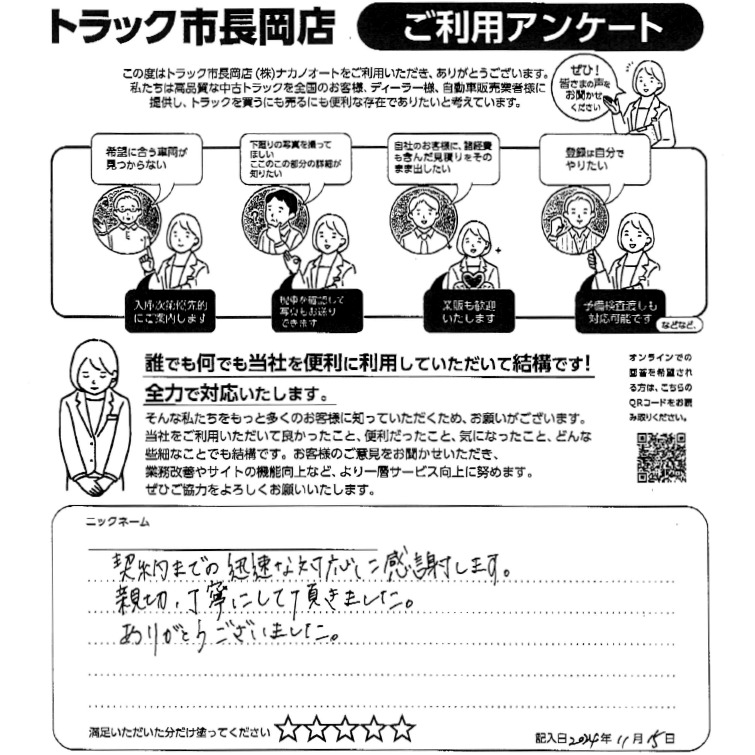 トラック市長岡店
ご利用アンケート
この度はトラック市長岡店(株)ナカノオートをご利用いただき、ありがとうございます。
私たちは高品質な中古トラックを全国のお客様、ディーラー様、自動車販売業者様に
提供し、トラックを買うにも売るにも便利な存在でありたいと考えています。
ぜひ!
皆さまの声を
お聞かせ
ください
希望に合う車両が
見つからない
下廻りの写真を撮って
ほしい
ここのこの部分の詳細が
知りたい
自社のお客様に、諸経費
も含んだ見積りをその
まま出したい
登録は自分で
やりたい
入庫次第優先的
にご案内します
現車を確認して
写真もお送り
できます
業販も歓迎
いたします
予備検査渡しも
対応可能です
などなど、
誰でも何でも当社を便利に利用していただいて結構です!
全力で対応いたします。
そんな私たちをもっと多くのお客様に知っていただくため、お願いがございます。
当社をご利用いただいて良かったこと、便利だったこと、気になったこと、どんな
些細なことでも結構です。お客様のご意見をお聞かせいただき、
業務改善やサイトの機能向上など、より一層サービス向上に努めます。
ぜひご協力をよろしくお願いいたします。
オンラインでの
回答を希望され
る方は、こちらの
QRコードをお読
み取りください。
ニックネーム
契約までの迅速な対応に感謝します。
親切、丁寧にして頂きました。
ありがとうございました。
満足いただいた分だけ塗ってください
記入日2024年 11月 15日